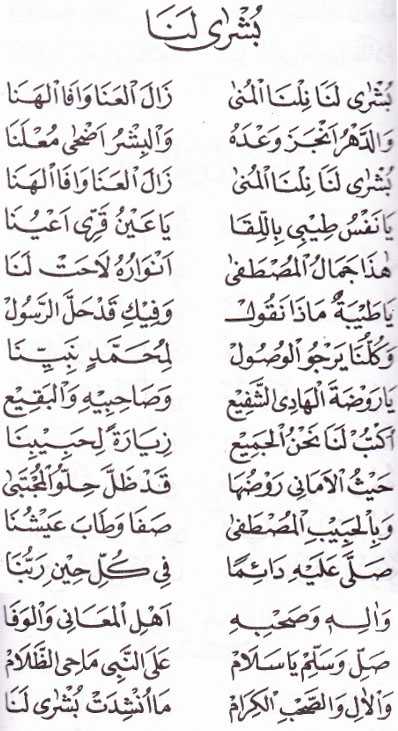 بُشْرٰى لَنَا
بُشْرٰى لَنَا نِلْنَا الْمُنٰى زَالَ الْعَنَا وَافَا الْهَنَا
وَالدَّهْرُ اَنْجَزَ وَعْدَهُ وَالْبِشْرُ اَضْحٰى مُعْلَنَا
بُشْرٰى لَنَا نِلْنَا الْمُنٰى زَالَ الْعَنَا وَافَا الْهَنَا
يَا نَفْسُ طِيْبِى بِاللِّقَا يَا عَيْنُ قَرِّى اَعْيُنَا
هٰذَا جَمَالُ الْمُصْطَفٰى اَنْوَارُهُ لَاحَتْ لَنَا
يَا طَيْبَةُ مَاذَا نَقُولُ وَفِيْكِ قَدْ حَلَّ الرَّسُولْ
وَكُلُّنَا يَرْجُو الْوُصُولْ لِمُحَمَّدٍ نَبِيِّنَا
يَا رَوْضَةَ الْهَادِى الشَّفِيْعِ وَصَاحِبِيْهِ وَالْبَقِيْعِ
اُكْتُبْ لَنَا نَحْنُ الْجَمِيْعِ زِيَارَةً لِحَبِيْبِنَا
حَيْثُ الْاَمَانِى رَوْضُهَا قَدْ ظَلَّ حِلْوُ الْمُجْتَنٰى
وَبِالْحَبِيْبِ الْمُصْطَفٰى صَفَا وَطَابَ عَيْشُنَا
صَلَّى عَلَيْهِ دَائِمًا فِى كُلِّ حِيْنٍ رَبُّنَا
وَاٰلِهِ وَصَحْبِهِ اَهْلِ الْمَعَانِى وَالْوَفَا
صَلِّ وَسَلِّمْ يَا سَلَامْ عَلَى النَّبِى مَاحِى الظَّلَامْ
وَالْاٰلِ وَالصَّحْبِ الْكِرَامْ مَا اُنْشِدَتْ بُشْرٰى لَنَا